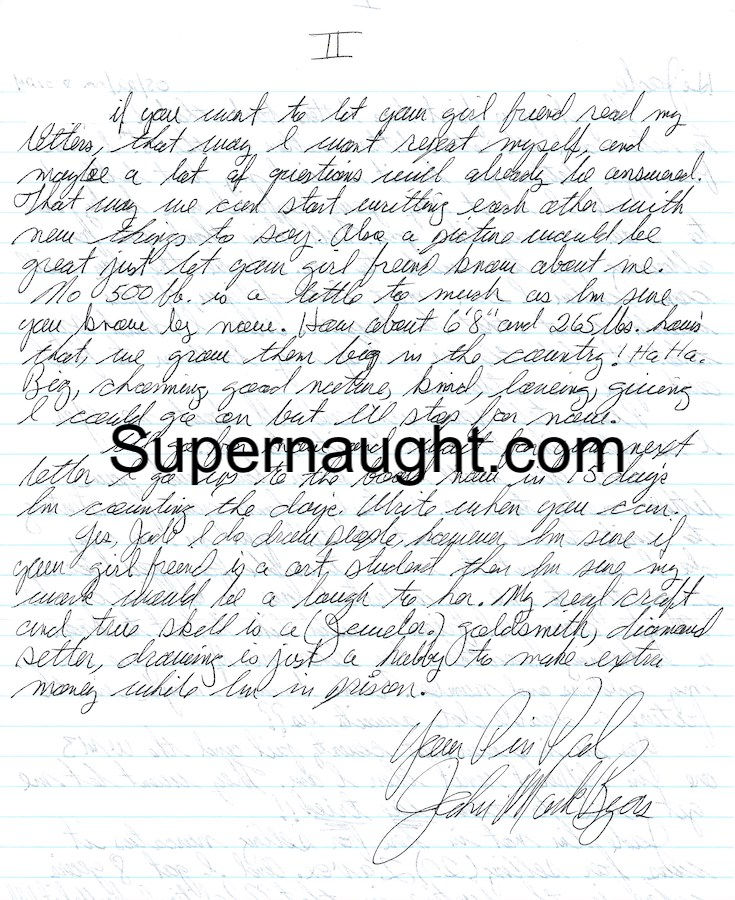 II
if you want to let your girl friend read my
letters, that way I wont repeat myself, and
maybe a lot of questions will already be answered.
That way we can start writting each other with
new things to say. Also a picture would be
great just let your girl freind know about me.
No 500 lb. is a little to much as Im sure
you know by now. How about 6'8" and 265 lbs. hows
that, we grow them big in the country! Ha Ha.
Big, charming, good nature, kind, loveing, giveing
I could go on but I'll stop for now.
for now and for you next
Supernaught.com
letter I go up to the board now in 13 days
Im counting the days. Write when you can.
Yes, Jade I do draw people, however Im sure if
your girl freend is a art student then Im sure my
work would be a laugh to her. My real craft
and true skell is a (Jeweler.) goldsmith, diamond
setter, drawing is just a hobby to make extra
money while Im in prison.
Your Pin Pal
John Mark Byers